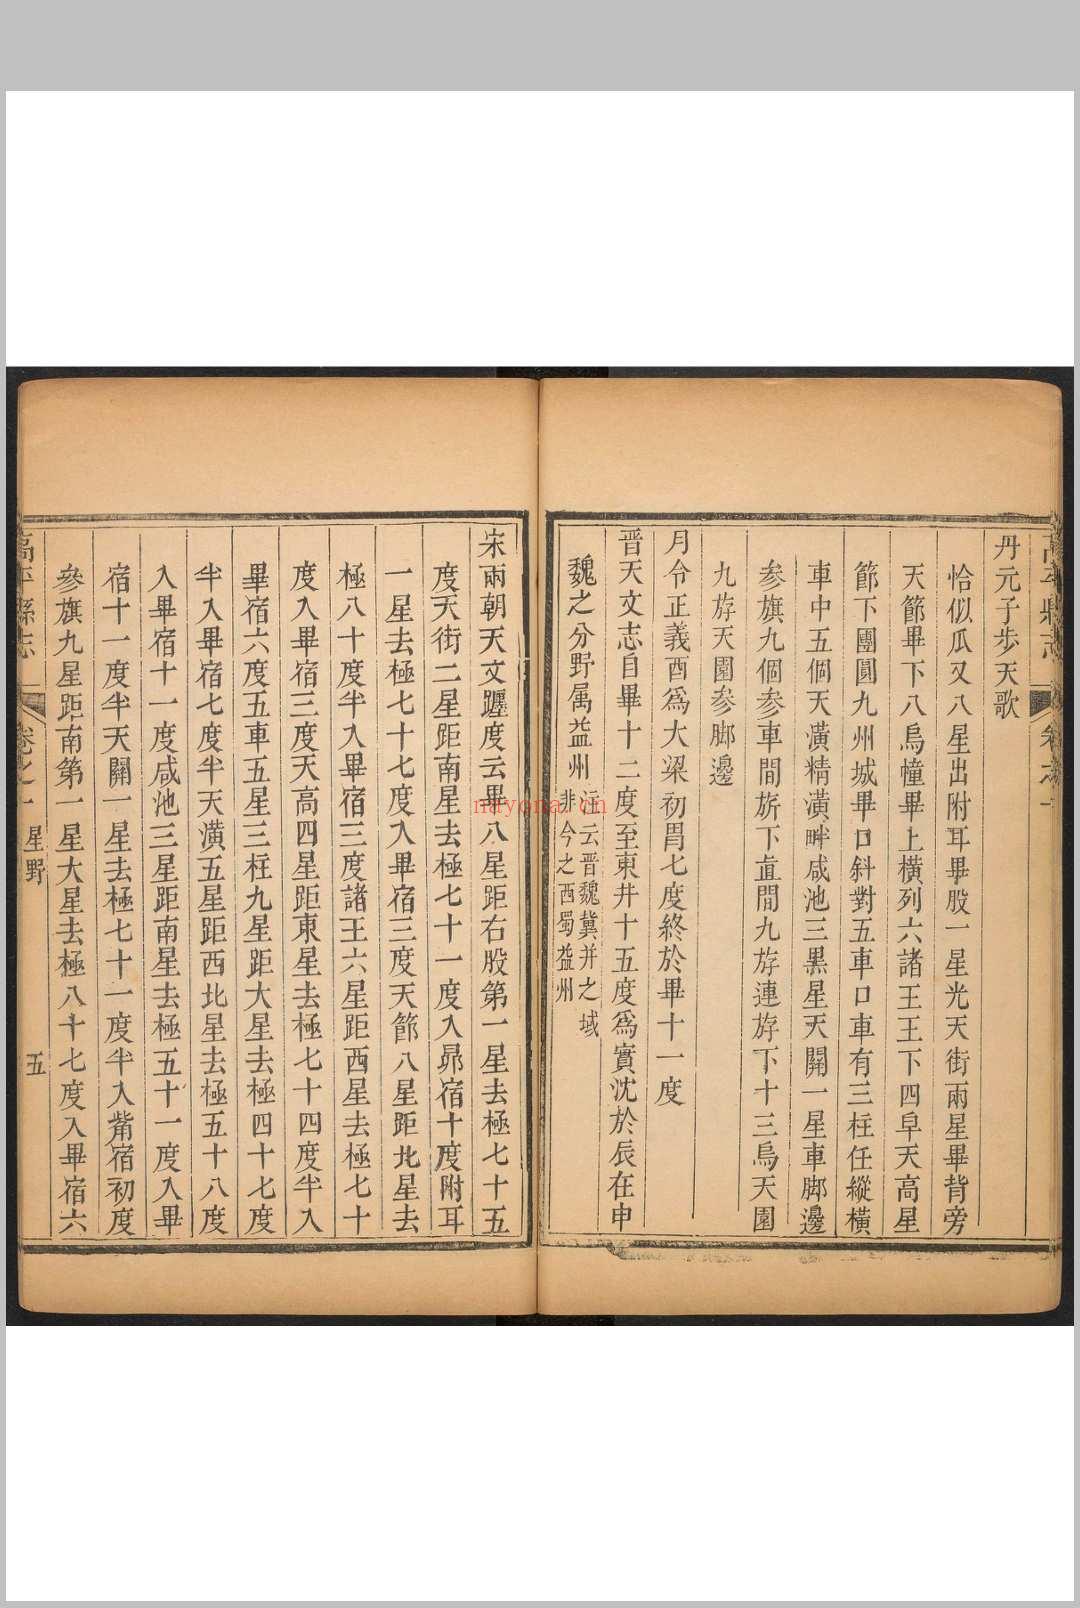 高平縣志
丹元子歩天歌
恰似瓜叉八星出附耳畢股一星光天街兩星畢背旁
天節畢下八烏幢畢上橫列六諸王王下四皁天高星
節下團圓九州城畢口斜對五車口車有三柱任縱橫
車中五個天潢精潢畔咸池三黑星天關一星車脚邊
參旗九個參車間旂下直間九斿連斿下十三烏天園
九斿天園參脚邊
月令正義酉爲大梁初胃七度終於畢十一度
晋天文志自畢十二度至東井十五度爲實沈於辰在申
魏之分野属益州
注云晋魏冀并之域
非今之西蜀益州
宋兩朝天文躔度云畢八星距右股第一星去極七十五
度天街二星距南星去極七十一度入昴宿十度附耳
一星去極七十七度入畢宿三度天節八星距北星去
極八十度半入畢宿三度諸王六星距西星去極七十
度入畢宿三度天高四星距東星去極七十四度半入
畢宿六度五車五星三柱九星距大星去極四十七度
半入畢宿七度半天潢五星距西北星去極五十八度
入畢宿十一度咸池三星距南星去極五十一度入畢
宿十一度半天關一星去極七十一度半入觜宿初度
參旗九星距南第一星大星去極八十七度入畢宿六
高平縣志
卷之一
星野
五
nayona.cn